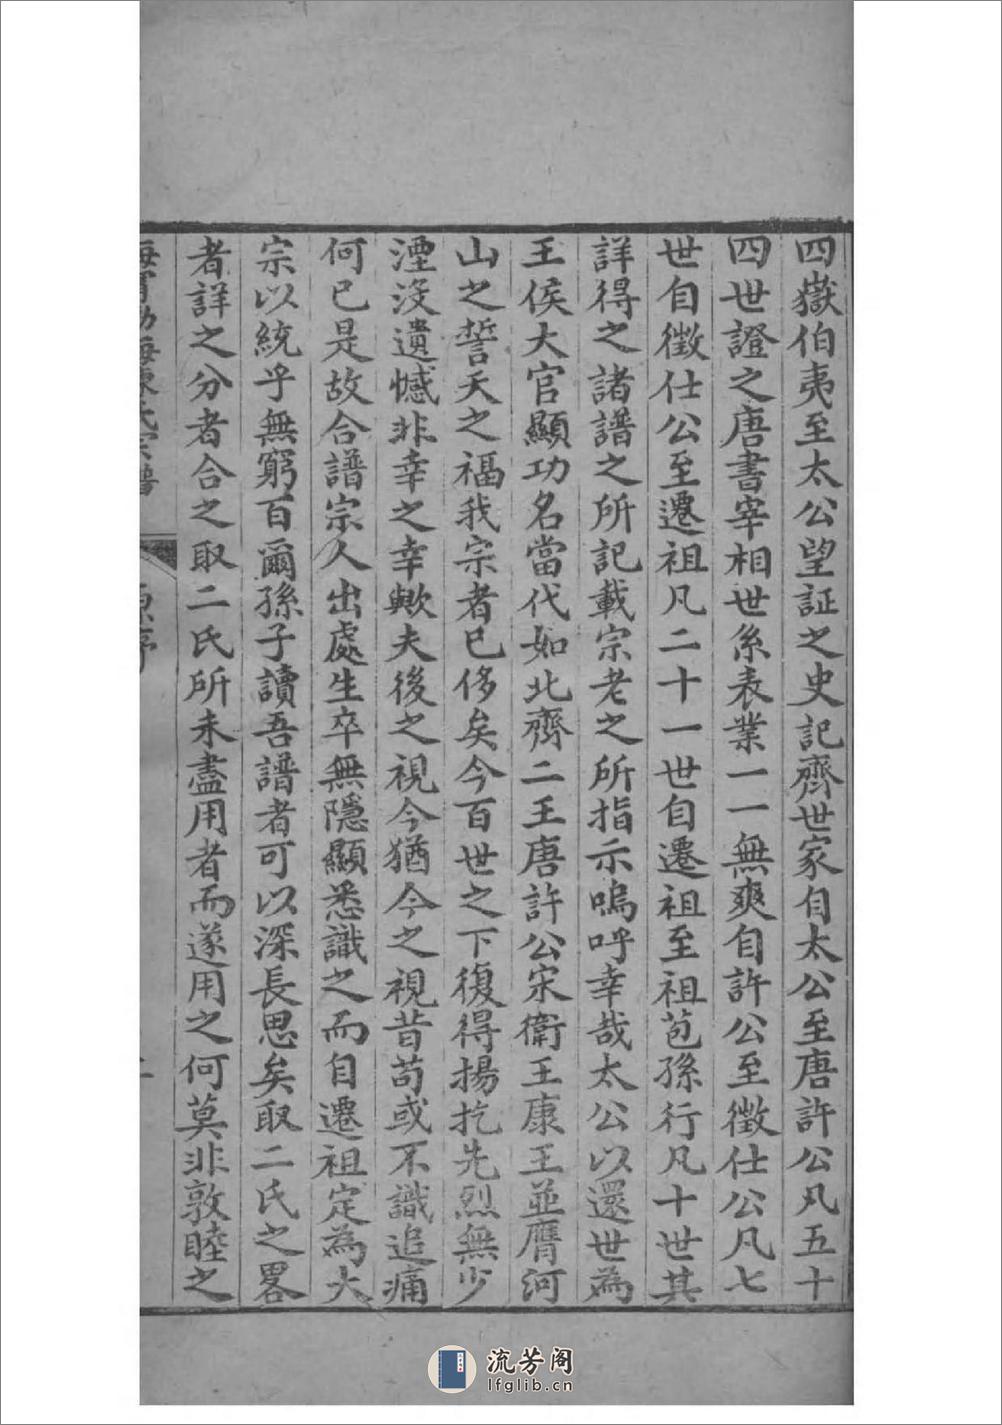 四嶽伯夷至太公望証之史記齊世家自太公至唐許公凡五十
四世證之唐書宰相世系表業一一無爽自許公至徵仕公凡七
世自徵仕公至遷祖凡二十一世自遷祖至祖苞孫行凡十世其
詳得之諸譜之所記載宗老之所指示嗚呼幸哉太公以還世為
王侯大官顯功名當代如北齊二王唐許公宋衛王康王並膺河
山之誓天之福我宗者已侈矣今百世之下復得揚扢先烈無少
湮没遺憾非幸之幸歟夫後之視今猶今之視昔苟或不識追痛
何已是故合譜宗人出處生卒無隱顯悉識之而自遷祖定為大
宗以統乎無窮百爾孫子讀吾譜者可以深長思矣取二氏之畧
者詳之分者合之取二氏所未盡用者而遂用之何莫非敦睦之
海寧渤海陳氏宗譜 原序
流芳阁
lfglib.cn